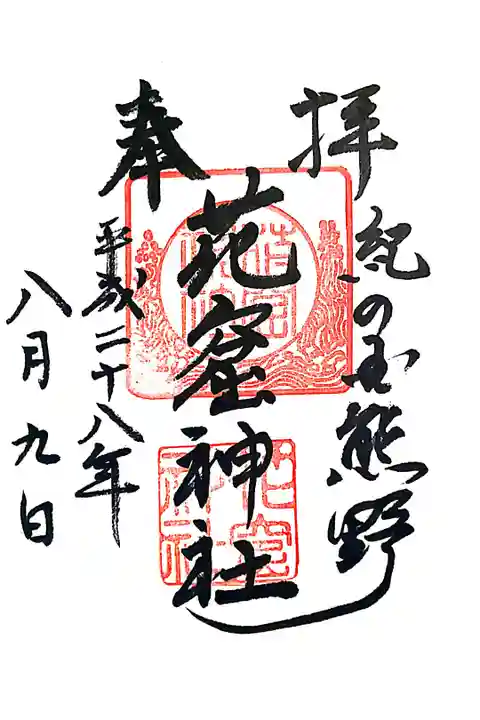 奉拝
紀の国熊野
花窟神社
平成二十八年
八月九日
花窟神社